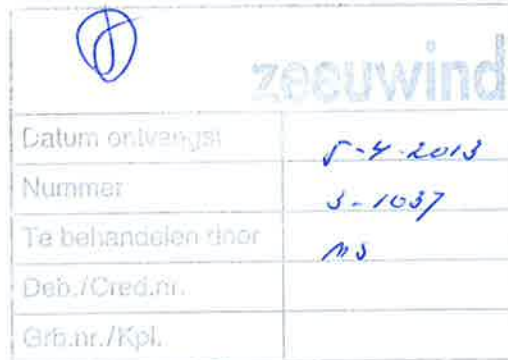 zeeuwind
Datum ontvangst 5-4-2013
Nummer 3-1037
Te behandelen door MS
Deb./Cred.nr.
Grb.nr./Kpl.